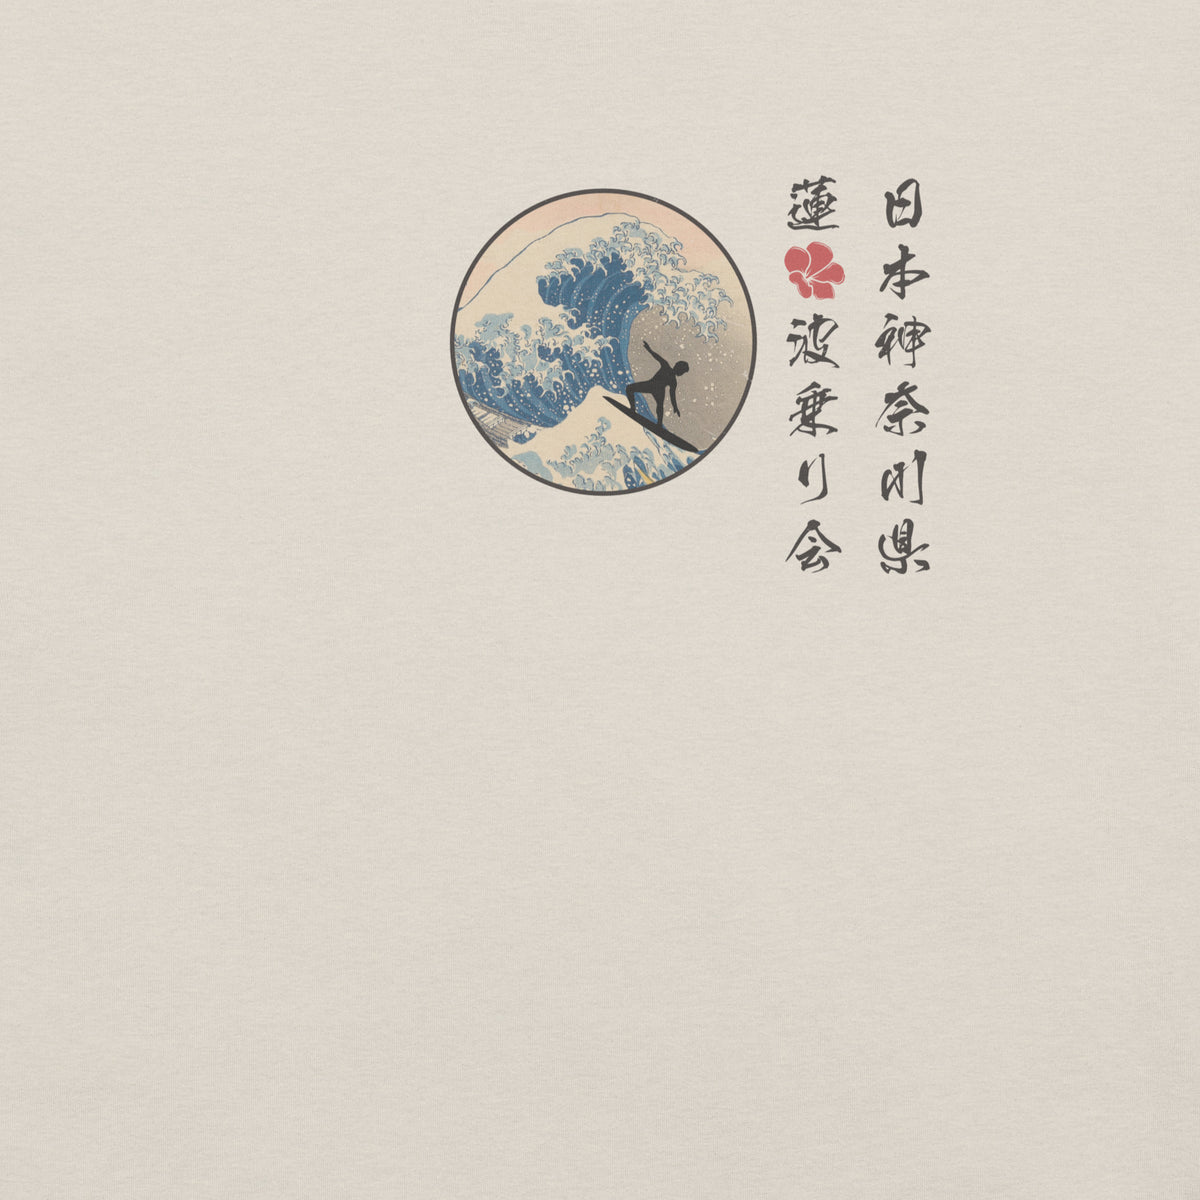 日本神奈川県
蓮波乗り会